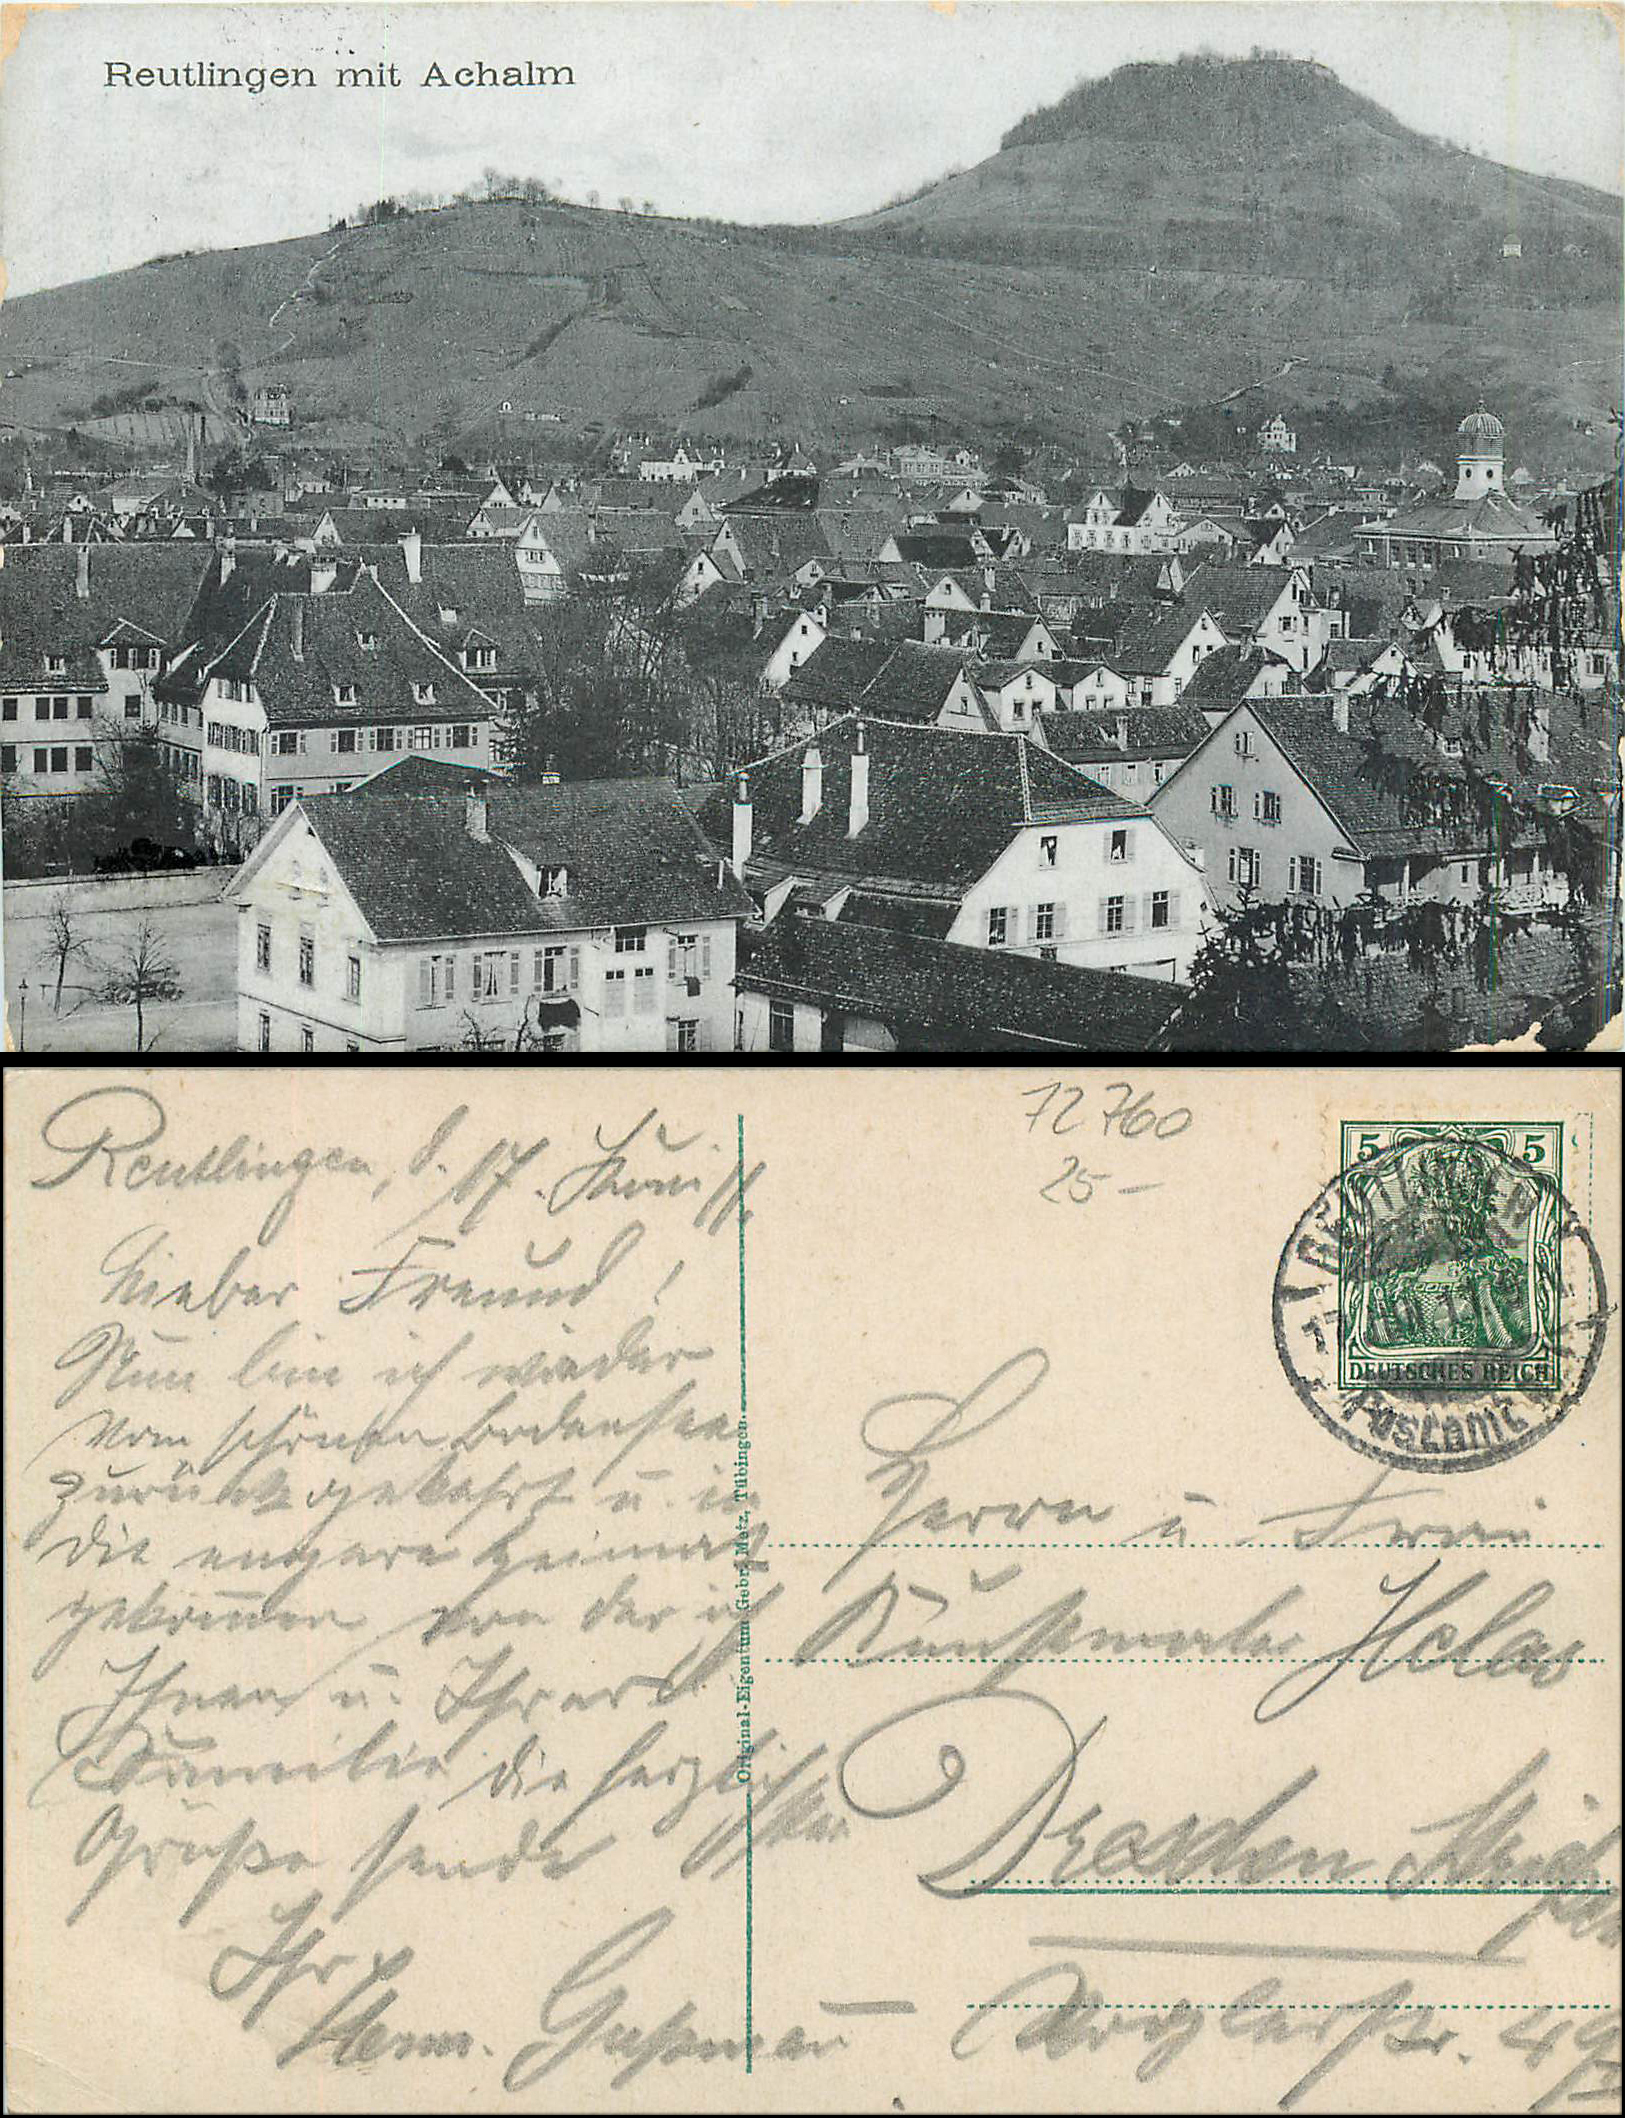 Reutlingen mit Achalm
72760
25 –
Reutlingen, d. 17. Juni 11.
Lieber Freund!
Nun bin ich wieder
vom schönen Bodensee
zurückgekehrt u. in
die engere Heimat
gekom̅en von der ich
Ihnen u. Ihrer l.
Familie die herzlich
sten
Grüße sende
Ihr
Herm. Gaßmau
Original-Eigentum Gebr. Metz, Tübingen.
5 5
DEUTSCHES REICH
REUTLINGEN
Postamt
Herrn u. Frau
Kunstmaler Helas
Dresden
49